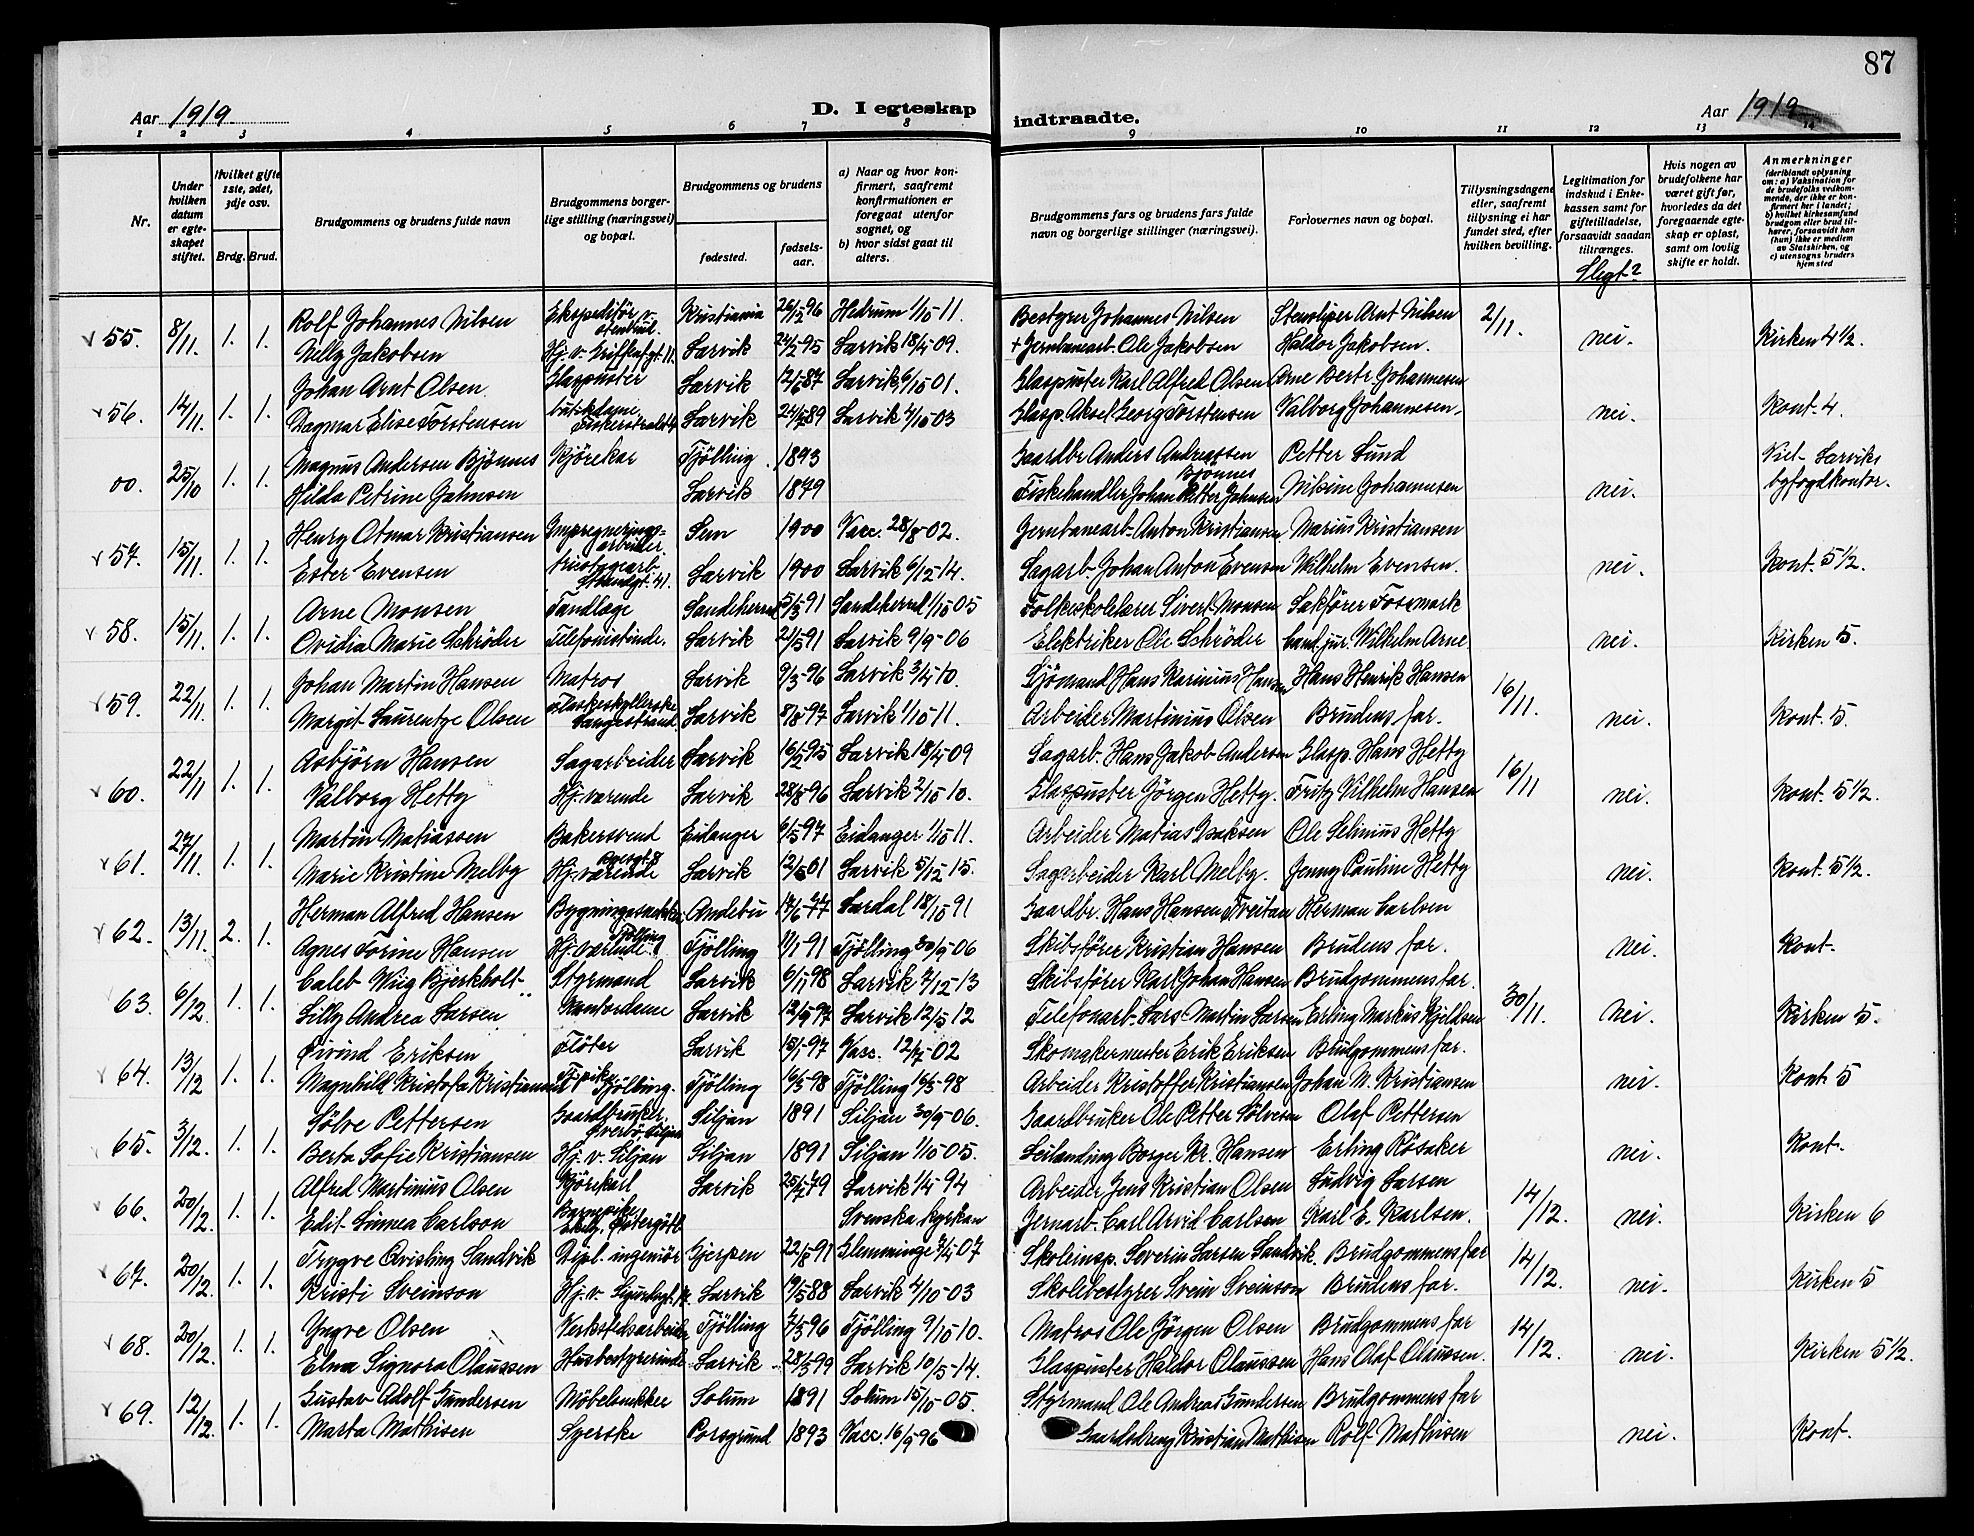 87
Aar 1919.
D. I egteskap indtraadte.
Aar 1919
1 2 3 4 5 6 7 8 9 10 11 12 13 14
Nr.
Under hvilken datum er egteskapet stiftet.
Hvilket gifte 1ste, 2det, 3dje osv.
Brdg. Brud.
Brudgommens og brudens fulde navn
Brudgommens borgerlige stilling (næringsvei) og bopæl.
Brudgommens og brudens
fødested.
fødselsaar.
a) Naar og hvor konfirmert, saafremt konfirmationen er foregaat utenfor sognet, og
b) hvor sidst gaat til alters.
Brudgommens fars og brudens fars fulde navn og borgerlige stillinger (næringsvei).
Forlovernes navn og bopæl.
Tillysningsdagene eller, saafremt tillysning ei har fundet sted, efter hvilken bevilling.
Legitimation for indskud i Enkekassen samt for giftetilladelse, forsaavidt saadan tiltrænges.
Slegt?
Hvis nogen av brudefolkene har været gift før, hvorledes da det foregaaende egteskap er opløst, samt om lovlig skifte er holdt.
Anmerkninger (deriblandt oplysning om: a) Vaksination for de brudefolks vedkommende, der ikke er konfirmert her i landet; b) hvilket kirkesamfund brudgom eller brud tilhører, forsaavidt han (hun) ikke er medlem av Statskirken, og c) utensogns bruders hjemsted
55. 8/11. 1. 1. Rolf Johannes Nilsen Kristiania 26/2-96 Hedrum 1/10-11. Bestyrer Johannes Nilsen Stensliper Arnt Nilsen 2/11. nei. Kirken 4½.
Nelly Jakobsen Larvik 24/2-95 Larvik 18/4-09. + Jernbanearb. Ole Jakobsen Haldor Jakobsen.
56. 14/11. 1. 1. Johan Arnt Olsen. Glaspuster Larvik 12/6-87 Larvik 6/10-01. Glaspuster Karl Alfred Olsen Arne Bertr. Johannesen nei. Kont. 4.
Dagmar Elise Torstensen butikdame Larvik 24/7-89 Larvik 4/10-03 Glasp. Aksel Georg Torstensen Valborg Johannesen.
00. 25/10 1. 1. Magnus Andersen Bjönnes Kjörekar Tjölling 1893 Gaardbr Anders Andreassen Bjönnes Petter Lund nei. Viet Larviks byfogdkontor.
Hilda Petrine Jahnsen Larvik 1879 Fiskehandler Johan Petter Jahnsen Nikine Johannesen
57. 15/11. 1. 1. Henry Otmar Kristiansen Impregneringsarbeider. Sem 1900 Vacc. 28/8-02. Jernbanearb. Anton Kristiansen Marius Kristiansen nei. Kont. 5½.
Ester Evensen Larvik 1900 Larvik 6/12-14. Sagarb. Johan Anton Evensen Wilhelm Evensen.
58. 15/11. 1. 1. Arne Monsen Tandlæge Sandeherred 5/3-91 Sandeherred 1/10-05 Folkeskolelærer Sivert Monsen Sakförer Fossmark nei. Kirken 5.
Ovidia Marie Schröder Telefonistinde. Larvik 21/5-91 Larvik 9/9-06 Elektriker Ole Schröder Cand. jur. Wilhelm Arne
59. 22/11. 1. 1. Johan Martin Hansen Matros Larvik 9/3-96 Larvik 3/4-10. Sjömand Hans Karinius Hansen Hans Henrik Hansen 16/11. nei. Kont. 5.
Margit Laurentze Olsen Flaskeskyllerske Langestrand. Larvik 8/8-97 Larvik 1/10-11. Arbeider Martinius Olsen Brudens far.
60. 22/11 1. 1. Asbjörn Hansen Sagarbeider Larvik 16/2-95 Larvik 18/4-09 Sagarb. Hans Jakob Andersen Glasp. Hans Hetty 16/11 nei. Kont. 5½.
Valborg Hetty Hj. værende Larvik 28/8-96 Larvik 2/10-10. Glaspuster Jörgen Hetty. Fritz Vilhelm Hansen
61. 27/11. 1. 1. Martin Matiassen Bakersvend Eidanger 6/5-97 Eidanger 1/10-11. Arbeider Matias Isaksen Ole Selinius Hetty nei. Kont. 5½.
Marie Kristine Melby Hj. værende Larvik 12/5-01 Larvik 5/12-15. Sagarbeider Karl Melby. Jenny Pauline Hetty
62. 13/11. 2. 1. Herman Alfred Hansen Andebu 14/6-77 Lardal 18/10-91 Gaardbr. Hans Hansen Tveitan Herman Carlsen nei. Kont.
Agnes Torine Hansen Hj. værende Tjölling Tjölling 11/1-91 Tjölling 30/9-06 Skibsförer Kristian Hansen Brudens far.
63. 6/12. 1. 1. Caleb Wiig Bjerkholt Styrmand Larvik 6/11-98 Larvik 7/12-13 Skibsförer Karl Johan Hansen Brudgommens far. 30/11. nei. Kirken 5.
Lilly Andrea Larsen Kontordame Larvik 12/9-97 Larvik 12/5-12 Telefonarb. Lars Martin Larsen Erling Markus Kjeldsen
64. 13/12 1. 1. Öivind Eriksen Flöter Larvik 15/1-97 Vacc. 12/7-02 Skomakermester Erik Eriksen Brudgommens far. nei. Kont. 5
Magnhild Kristofa Kristiansen Tjölling. Tjölling 16/3-98 Tjölling 16/3-98 Arbeider Kristoffer Kristiansen Johan N. Kristiansen
65. 3/12. 1. 1. Sölve Pettersen Gaardbruker Siljan 1891 Siljan 30/9-06. Gaardbruker Ole Petter Sölvesen Olaf Pettersen nei. Kont.
Berta Sofie Kristiansen Hj. v. Siljan Siljan 1891 Siljan 1/10-05. Borger Kr. Hansen Erling Rösaker
66. 20/12. 1. 1. Alfred Martinius Olsen Kjörekarl Larvik 25/2-79 Larvik 1/4-94 Arbeider Jens Kristian Olsen Ludvig Larsen 14/12. nei. Kirken 6
Edit Linnea Carlson Svenska kyrkan Jernarb. Carl Arvid Carlsen Karl E. Karlsen.
67. 20/12. 1. 1. Trygve Qvisling Sandvik Dipl. ingeniör Gjerpen 22/8-91 Glemminge 7/4-07 Skoleinsp. Severin Larsen Sandvik. Brudgommens far 14/12. nei. Kirken 5
Kristi Sveinson Larvik 19/5-88 Larvik 4/10-03 Skolebestyrer Svein Sveinson Brudens far.
68. 20/12. 1. 1. Yngve Olsen Verkstedsarbeider Tjölling 7/3-96 Tjölling 9/10-10. Matros Ole Jörgen Olsen Brudgommens far 14/12. nei. Kirken 5½.
Elna Signora Olaussen Husbestyrerinde Larvik 28/3-99 Larvik 10/5-14. Glaspuster Haldor Olaussen Hans Olaf Olaussen.
69. 12/12. 1. 1. Gustav Adolf Gundersen Möbelsnekker Solum 1891 Solum 15/10-05. Styrmand Ole Andreas Gundersen Brudgommens far nei. Kont.
Marta Mathisen Syerske Porsgrund 1893 Vacc. 16/9-96 Gaardsdreng Kristian Mathisen Rolf Mathisen